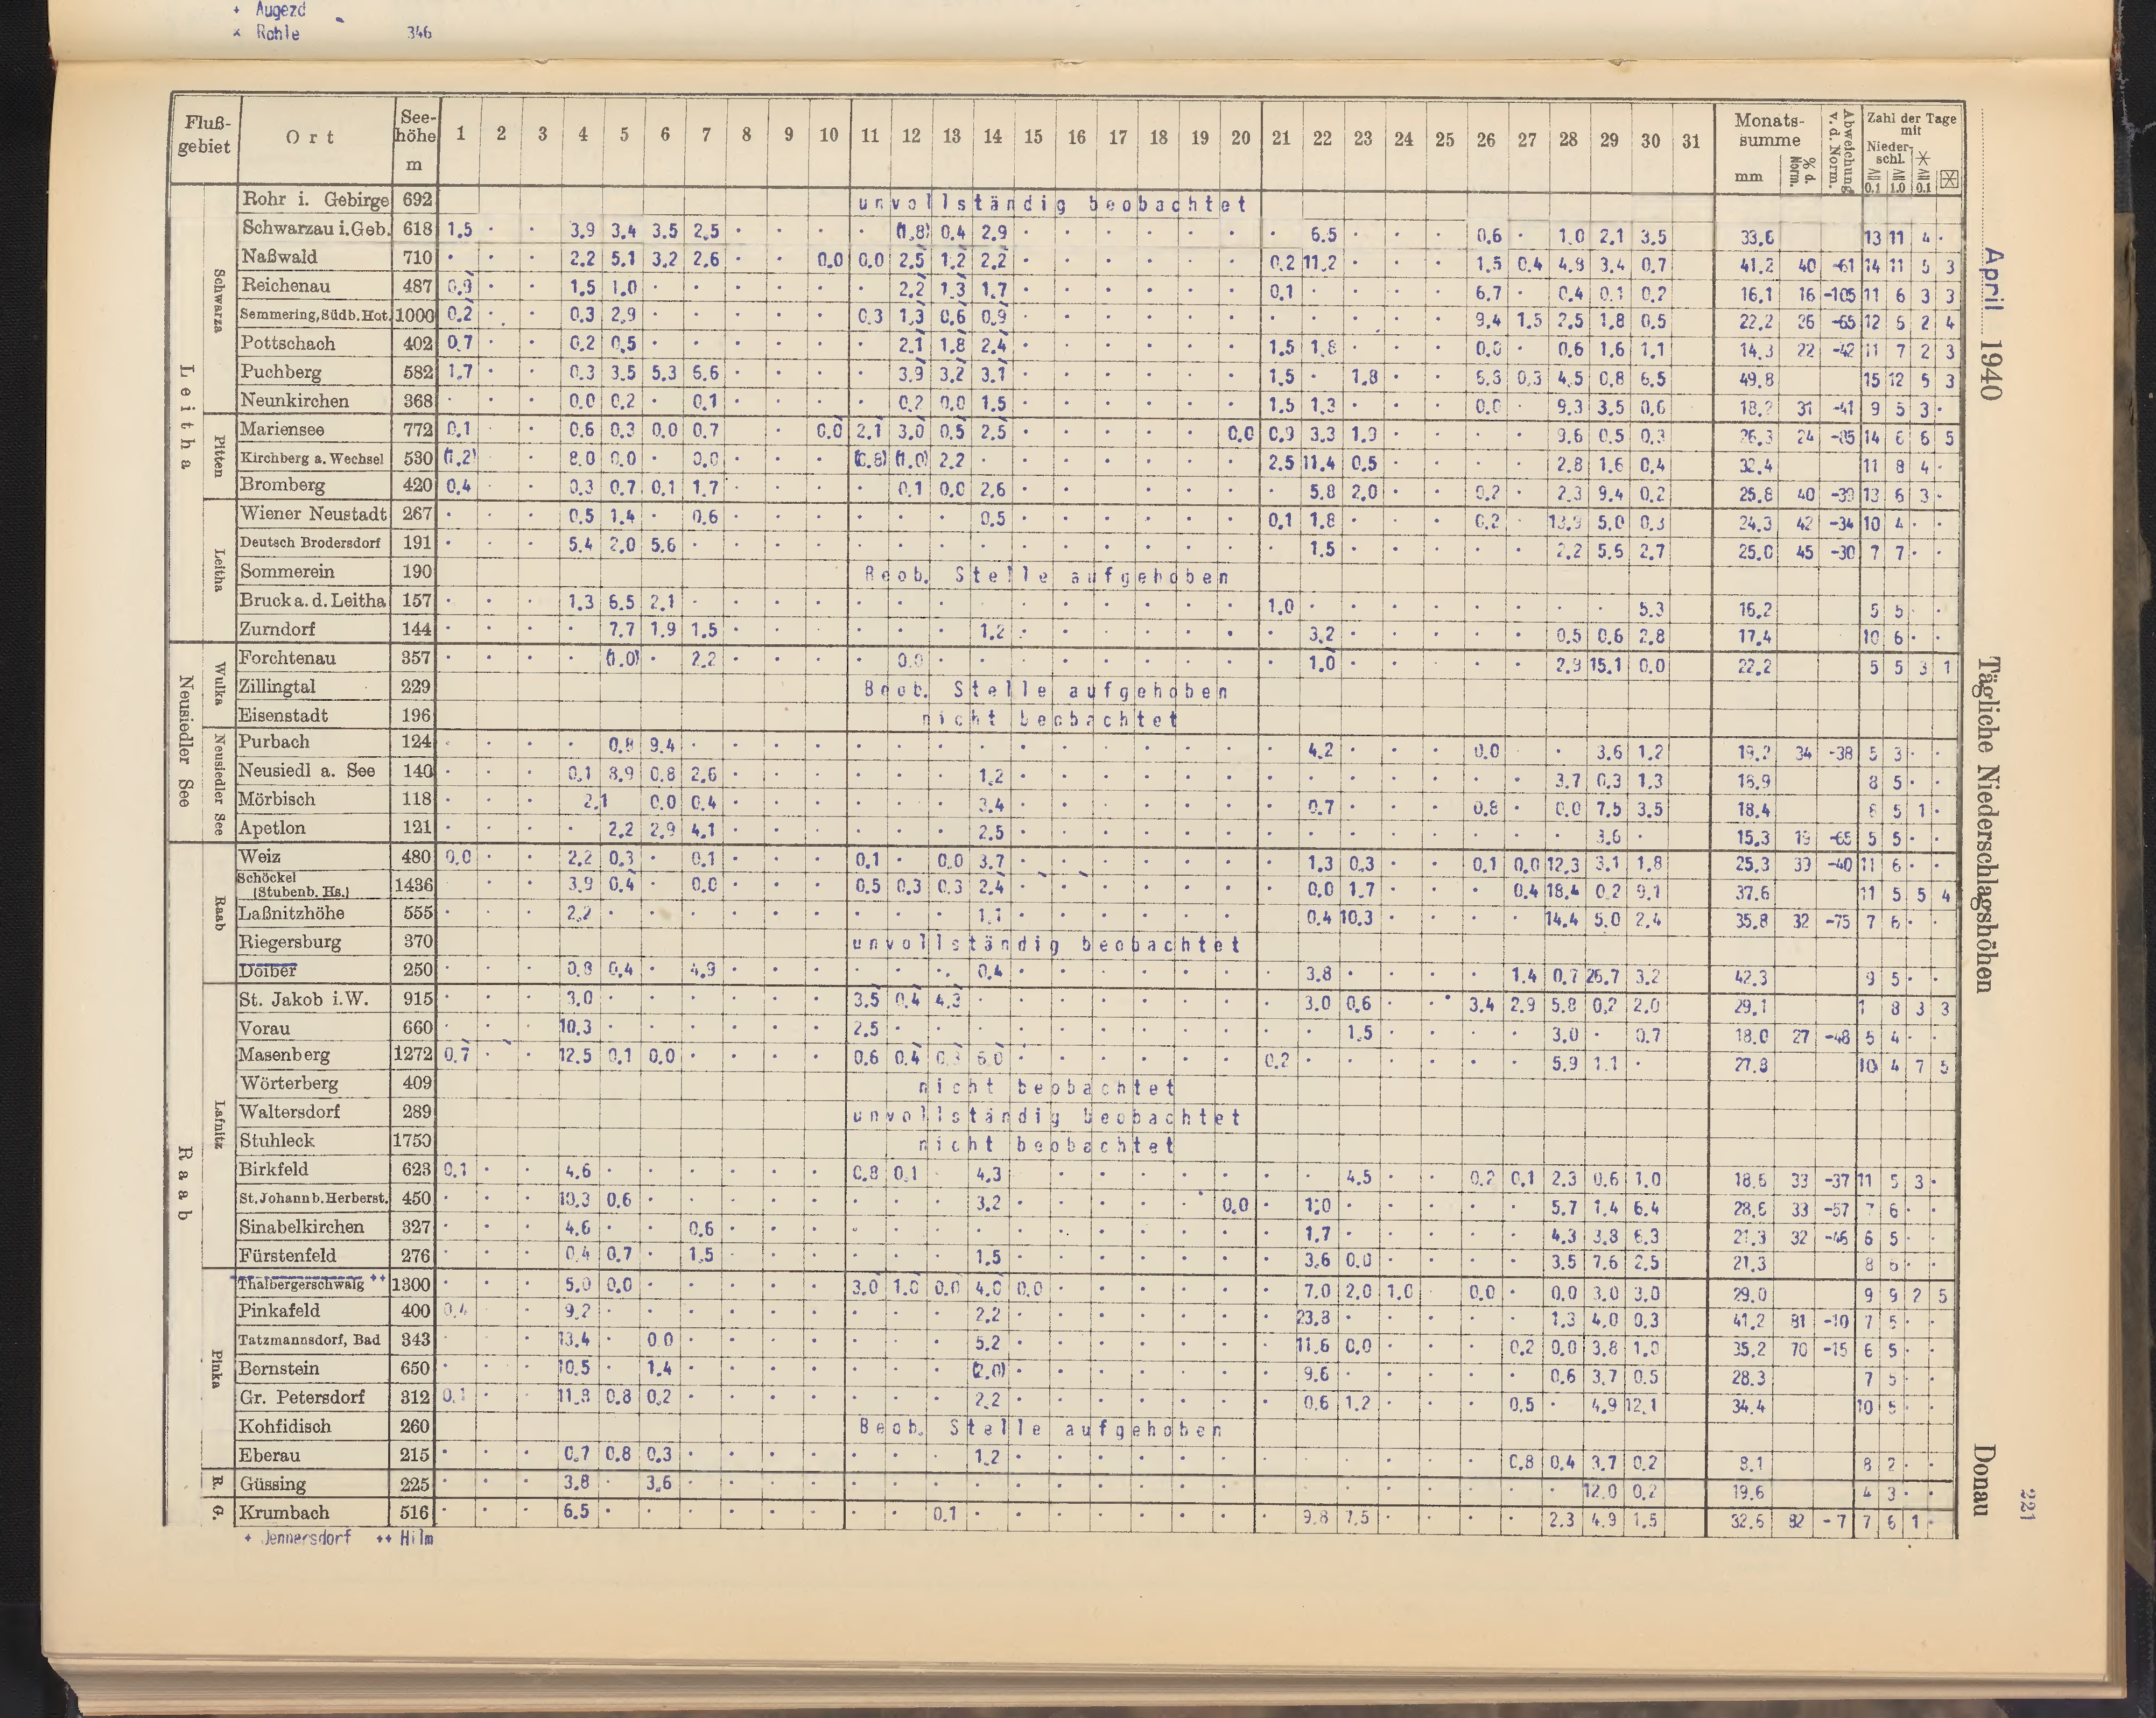 + Augezd
× Rohle 346
Fluß-gebiet Ort See-höhe m 1 2 3 4 5 6 7 8 9 10 11 12 13 14 15 16 17 18 19 20 21 22 23 24 25 26 27 28 29 30 31 Monats-summe mm % d. Norm. Abweichung v. d. Norm. Zahl der Tage mit Nieder-schl. ≧ 0.1 ≧ 1.0 ≧ 0.1
Leitha
Schwarza
Rohr i. Gebirge 692 unvollständig beobachtet
Schwarzau i. Geb. 618 1.5 · · 3.9 3.4 3.5 2.5 · · · · (1,8) 0.4 2.9 · · · · · · · 6.5 · · · 0.6 · 1.0 2.1 3.5 33.6 13 11 4 ·
Naßwald 710 · · · 2.2 5.1 3.2 2.6 · · 0.0 0.0 2.5 1.2 2.2 · · · · · · 0.2 11.2 · · · 1.5 0.4 4.9 3.4 0.7 41.2 40 -61 14 11 5 3
Reichenau 487 0.9 · · 1.5 1.0 · · · · · · 2.2 1.3 1.7 · · · · · · 0.1 · · · · 6.7 · 0.4 0.1 0.2 16.1 16 -105 11 6 3 3
Semmering, Südb. Hot. 1000 0.2 · · 0.3 2.9 · · · · · 0.3 1.3 0.6 0.9 · · · · · · · · · · · 9.4 1.5 2.5 1.8 0.5 22.2 26 -65 12 6 2 4
Pottschach 402 0.7 · · 0.2 0.5 · · · · · · 2.1 1.8 2.4 · · · · · · 1.5 1.8 · · · 0.0 · 0.6 1.6 1.1 14.3 22 -42 11 7 2 3
Puchberg 582 1.7 · · 0.3 3.5 5.3 6.6 · · · · 3.9 3.2 3.1 · · · · · · 1.5 · 1.8 · · 6.3 0.3 4.5 0.8 6.5 49.8 15 12 5 3
Neunkirchen 368 · · · 0.0 0.2 · 0.1 · · · · 0.2 0.0 1.5 · · · · · · 1.5 1.3 · · · 0.0 · 9.3 3.5 0.6 18.2 31 -41 9 5 3 ·
Pitten
Mariensee 772 0.1 · · 0.6 0.3 0.0 0.7 · 0.0 2.1 3.0 0.5 2.5 · · · · · 0.0 0.9 3.3 1.9 · · · · 9.6 0.5 0.3 26.3 24 -85 14 6 6 5
Kirchberg a. Wechsel 530 (1.2) · · 8.0 0.0 · 0.0 · · · (0.8) (1.0) 2.2 · · · · · · · 2.5 11.4 0.5 · · · · 2.8 1.6 0.4 32.4 11 8 4 ·
Bromberg 420 0.4 · · 0.3 0.7 0.1 1.7 · · · · 0.1 0.0 2.6 · · · · · · 5.8 2.0 · · 0.2 · 2.3 9.4 0.2 25.8 40 -39 13 6 3 ·
Leitha
Wiener Neustadt 267 · · · 0.5 1.4 · 0.6 · · · · · · 0.5 · · · · · · 0.1 1.8 · · · 0.2 · 13.9 5.0 0.3 24.3 42 -34 10 4 · ·
Deutsch Brodersdorf 191 · · · 5.4 2.0 5.6 · · · · · · · · · · · · · · · 1.5 · · · · · 2.2 5.6 2.7 25.0 45 -30 7 7 · ·
Sommerein 190 Beob. Stelle aufgehoben
Bruck a. d. Leitha 157 · · · 1.3 6.5 2.1 · · · · · · · · · · · · · 1.0 · · · · · · · · 5.3 16.2 5 5 · ·
Zurndorf 144 · · · · 7.7 1.9 1.5 · · · · · · 1.2 · · · · · · · 3.2 · · · · · 0.5 0.6 2.8 17.4 10 6 · ·
Neusiedler See
Wulka
Forchtenau 357 · · · · (1.0) · 2.2 · · · · 0.0 · · · · · · · · · 1.0 · · · · · 2.9 15.1 0.0 22.2 5 5 3 1
Zillingtal 229 Beob. Stelle aufgehoben
Eisenstadt 196 nicht beobachtet
Neusiedler See
Purbach 124 · · · · 0.8 9.4 · · · · · · · · · · · · · · · 4.2 · · · 0.0 · · 3.6 1.2 19.2 34 -38 5 3 · ·
Neusiedl a. See 140 · · · 0.1 8.9 0.8 2.6 · · · · · · 1.2 · · · · · · · · · · · · · 3.7 0.3 1.3 18.9 8 5 · ·
Mörbisch 118 · · · 2.1 0.0 0.4 · · · · · · 3.4 · · · · · · · 0.7 · · · 0.8 · 0.0 7.5 3.5 18.4 6 5 1 ·
Apetlon 121 · · · · 2.2 2.9 4.1 · · · · · · 2.5 · · · · · · · · · · · · · · 3.6 · 15.3 19 -65 5 5 · ·
Raab
Raab
Weiz 480 0.0 · · 2.2 0.3 · 0.1 · · · 0.1 · 0.0 3.7 · · · · · · · 1.3 0.3 · · 0.1 0.0 12.3 3.1 1.8 25.3 39 -40 11 6 · ·
Schöckel (Stubenb. Hs.) 1436 · · 3.9 0.4 · 0.0 · · · 0.5 0.3 0.3 2.4 · · · · · · · 0.0 1.7 · · · 0.4 18.4 0.2 9.1 37.6 11 5 5 4
Laßnitzhöhe 555 · · · 2.2 · · · · · · · · · 1.1 · · · · · · · 0.4 10.3 · · · · 14.4 5.0 2.4 35.8 32 -75 7 6 · ·
Riegersburg 370 unvollständig beobachtet
Doiber 250 · · · 0.8 0.4 · 4.9 · · · · · · 0.4 · · · · · · · 3.8 · · · · 1.4 0.7 26.7 3.2 42.3 9 5 · ·
Lafnitz
St. Jakob i. W. 915 · · · 3.0 · · · · · · 3.5 0.4 4.3 · · · · · · · · 3.0 0.6 · · 3.4 2.9 5.8 0.2 2.0 29.1 1 8 3 3
Vorau 660 · · · 10.3 · · · · · · 2.5 · · · · · · · · · · · 1.5 · · · · 3.0 · 0.7 18.0 27 -48 5 4 · ·
Masenberg 1272 0.7 · · 12.5 0.1 0.0 · · · · 0.6 0.4 0.3 6.0 · · · · · · 0.2 · · · · · · 5.9 1.1 · 27.8 10 4 7 5
Wörterberg 409 nicht beobachtet
Waltersdorf 289 unvollständig beobachtet
Stuhleck 1750 nicht beobachtet
Birkfeld 623 0.1 · · 4.6 · · · · · · 0.8 0.1 · 4.3 · · · · · · · · 4.5 · · 0.2 0.1 2.3 0.6 1.0 18.6 33 -37 11 5 3 ·
St. Johann b. Herberst. 450 · · · 10.3 0.6 · · · · · · · · 3.2 · · · · · 0.0 · 1.0 · · · · · 5.7 1.4 6.4 28.6 33 -57 7 6 · ·
Sinabelkirchen 327 · · · 4.6 · · 0.6 · · · · · · · · · · · · · · 1.7 · · · · · 4.3 3.8 6.3 21.3 32 -46 6 5 · ·
Fürstenfeld 276 · · · 0.4 0.7 · 1.5 · · · · · · 1.5 · · · · · · · 3.6 0.0 · · · · 3.5 7.6 2.5 21.3 8 6 · ·
Pinka
Thalbergerschwaig ++ 1300 · · · 5.0 0.0 · · · · · 3.0 1.0 0.0 4.0 0.0 · · · · · · 7.0 2.0 1.0 · 0.0 · 0.0 3.0 3.0 29.0 9 9 2 5
Pinkafeld 400 0.4 · · 9.2 · · · · · · · · · 2.2 · · · · · · · 23.8 · · · · · 1.3 4.0 0.3 41.2 81 -10 7 5 · ·
Tatzmannsdorf, Bad 343 · · · 13.4 · 0.0 · · · · · · · 5.2 · · · · · · · 11.6 0.0 · · · 0.2 0.0 3.8 1.0 35.2 70 -15 6 5 · ·
Bernstein 650 · · · 10.5 · 1.4 · · · · · · · (2.0) · · · · · · · 9.6 · · · · · 0.6 3.7 0.5 28.3 7 5 · ·
Gr. Petersdorf 312 0.1 · · 11.8 0.8 0.2 · · · · · · · 2.2 · · · · · · · 0.6 1.2 · · · 0.5 · 4.9 12.1 34.4 10 5 · ·
Kohfidisch 260 Beob. Stelle aufgehoben
Eberau 215 · · · 0.7 0.8 0.3 · · · · · · · 1.2 · · · · · · · · · · · · 0.8 0.4 3.7 0.2 8.1 8 2 · ·
R.
Güssing 225 · · · 3.8 · 3.6 · · · · · · · · · · · · · · · · · · · · · · 12.0 0.2 19.6 4 3 · ·
G.
Krumbach 516 · · · 6.5 · · · · · · · · 0.1 · · · · · · · · 9.8 7.5 · · · · 2.3 4.9 1.5 32.6 82 -7 7 6 1 ·
+ Jennersdorf ++ Hilm
April 1940
Tägliche Niederschlagshöhen
Donau
221